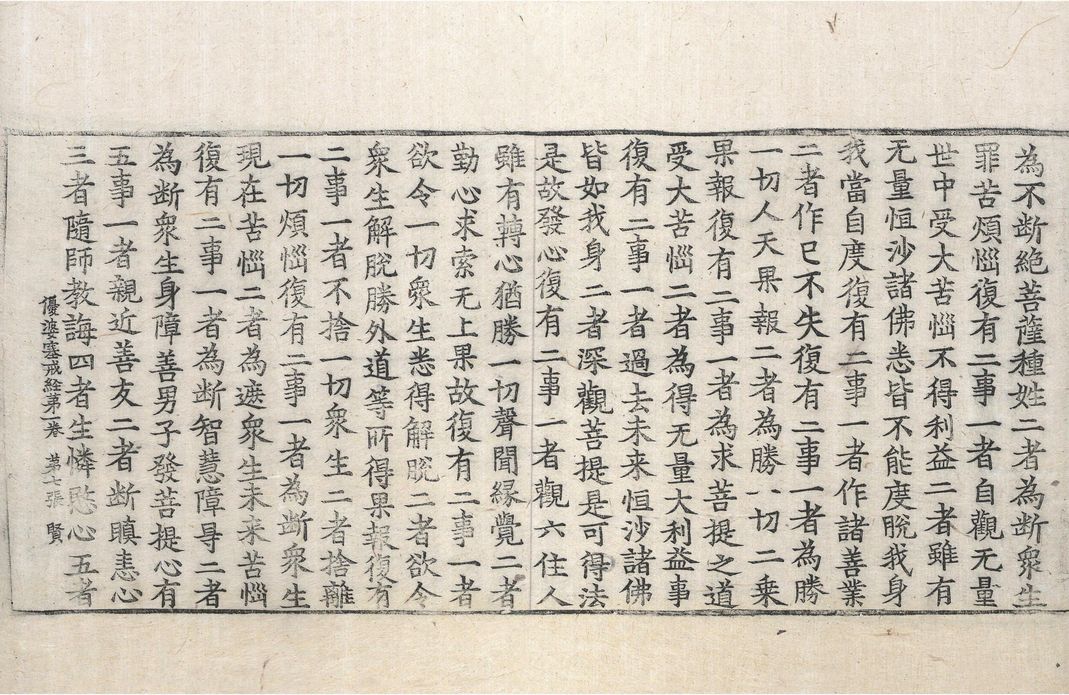 為不断絶菩薩種姓二者為断衆生
罪苦煩惱復有二事一者自觀无量
世中受大苦惱不得利益二者雖有
无量恒沙諸佛悉皆不能度脫我身
我當自度復有二事一者作諸善業
二者作已不失復有二事一者為勝
一切人天果報二者為勝一切二乗
果報復有二事一者為求菩提之道
受大苦惱二者為得无量大利益事
復有二事一者過去未来恒沙諸佛
皆如我身二者深觀菩提是可得法
是故發心復有二事一者觀六住人
雖有轉心猶勝一切聲聞緣覺二者
勤心求索无上果故復有二事一者
欲令一切衆生悉得解脫二者欲令
衆生解脫勝外道等所得果報復有
二事一者不捨一切衆生二者捨離
一切煩惱復有二事一者為断衆生
現在苦惱二者為遮衆生未来苦惱
復有二事一者為断智慧障㝵二者
為断衆生身障善男子發菩提心有
五事一者親近善友二者断瞋恚心
三者隨師教誨四者生憐愍心五者
優婆塞戒經第一卷 第七張 賢